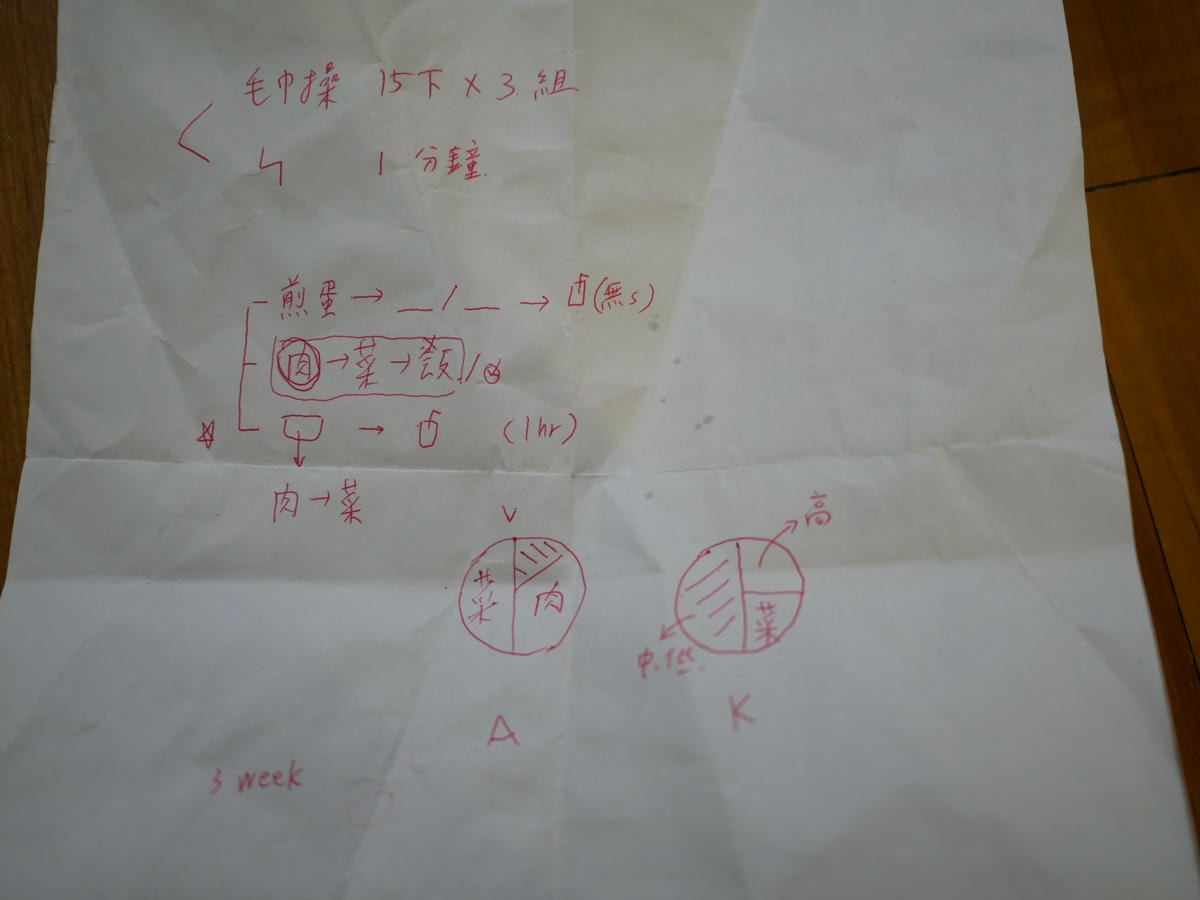 毛巾操 15下 x 3組
ㄣ 1分鐘
煎蛋 → __/__ → (無s)
肉→菜→飯/
→ (1hr)
肉→菜
V
菜 肉
A
高
菜
中.低
K
3 week